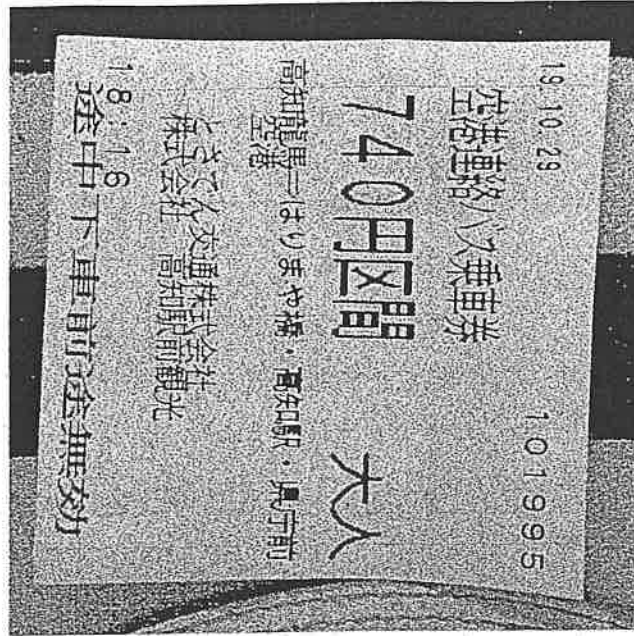 19.10.29 101995
空港連絡バス乗車券
740円区間 大人
高知龍馬空港−はりまや橋・高知駅・県庁前
とさでん交通株式会社
株式会社 高知駅前観光
18:16
途中下車前途無効